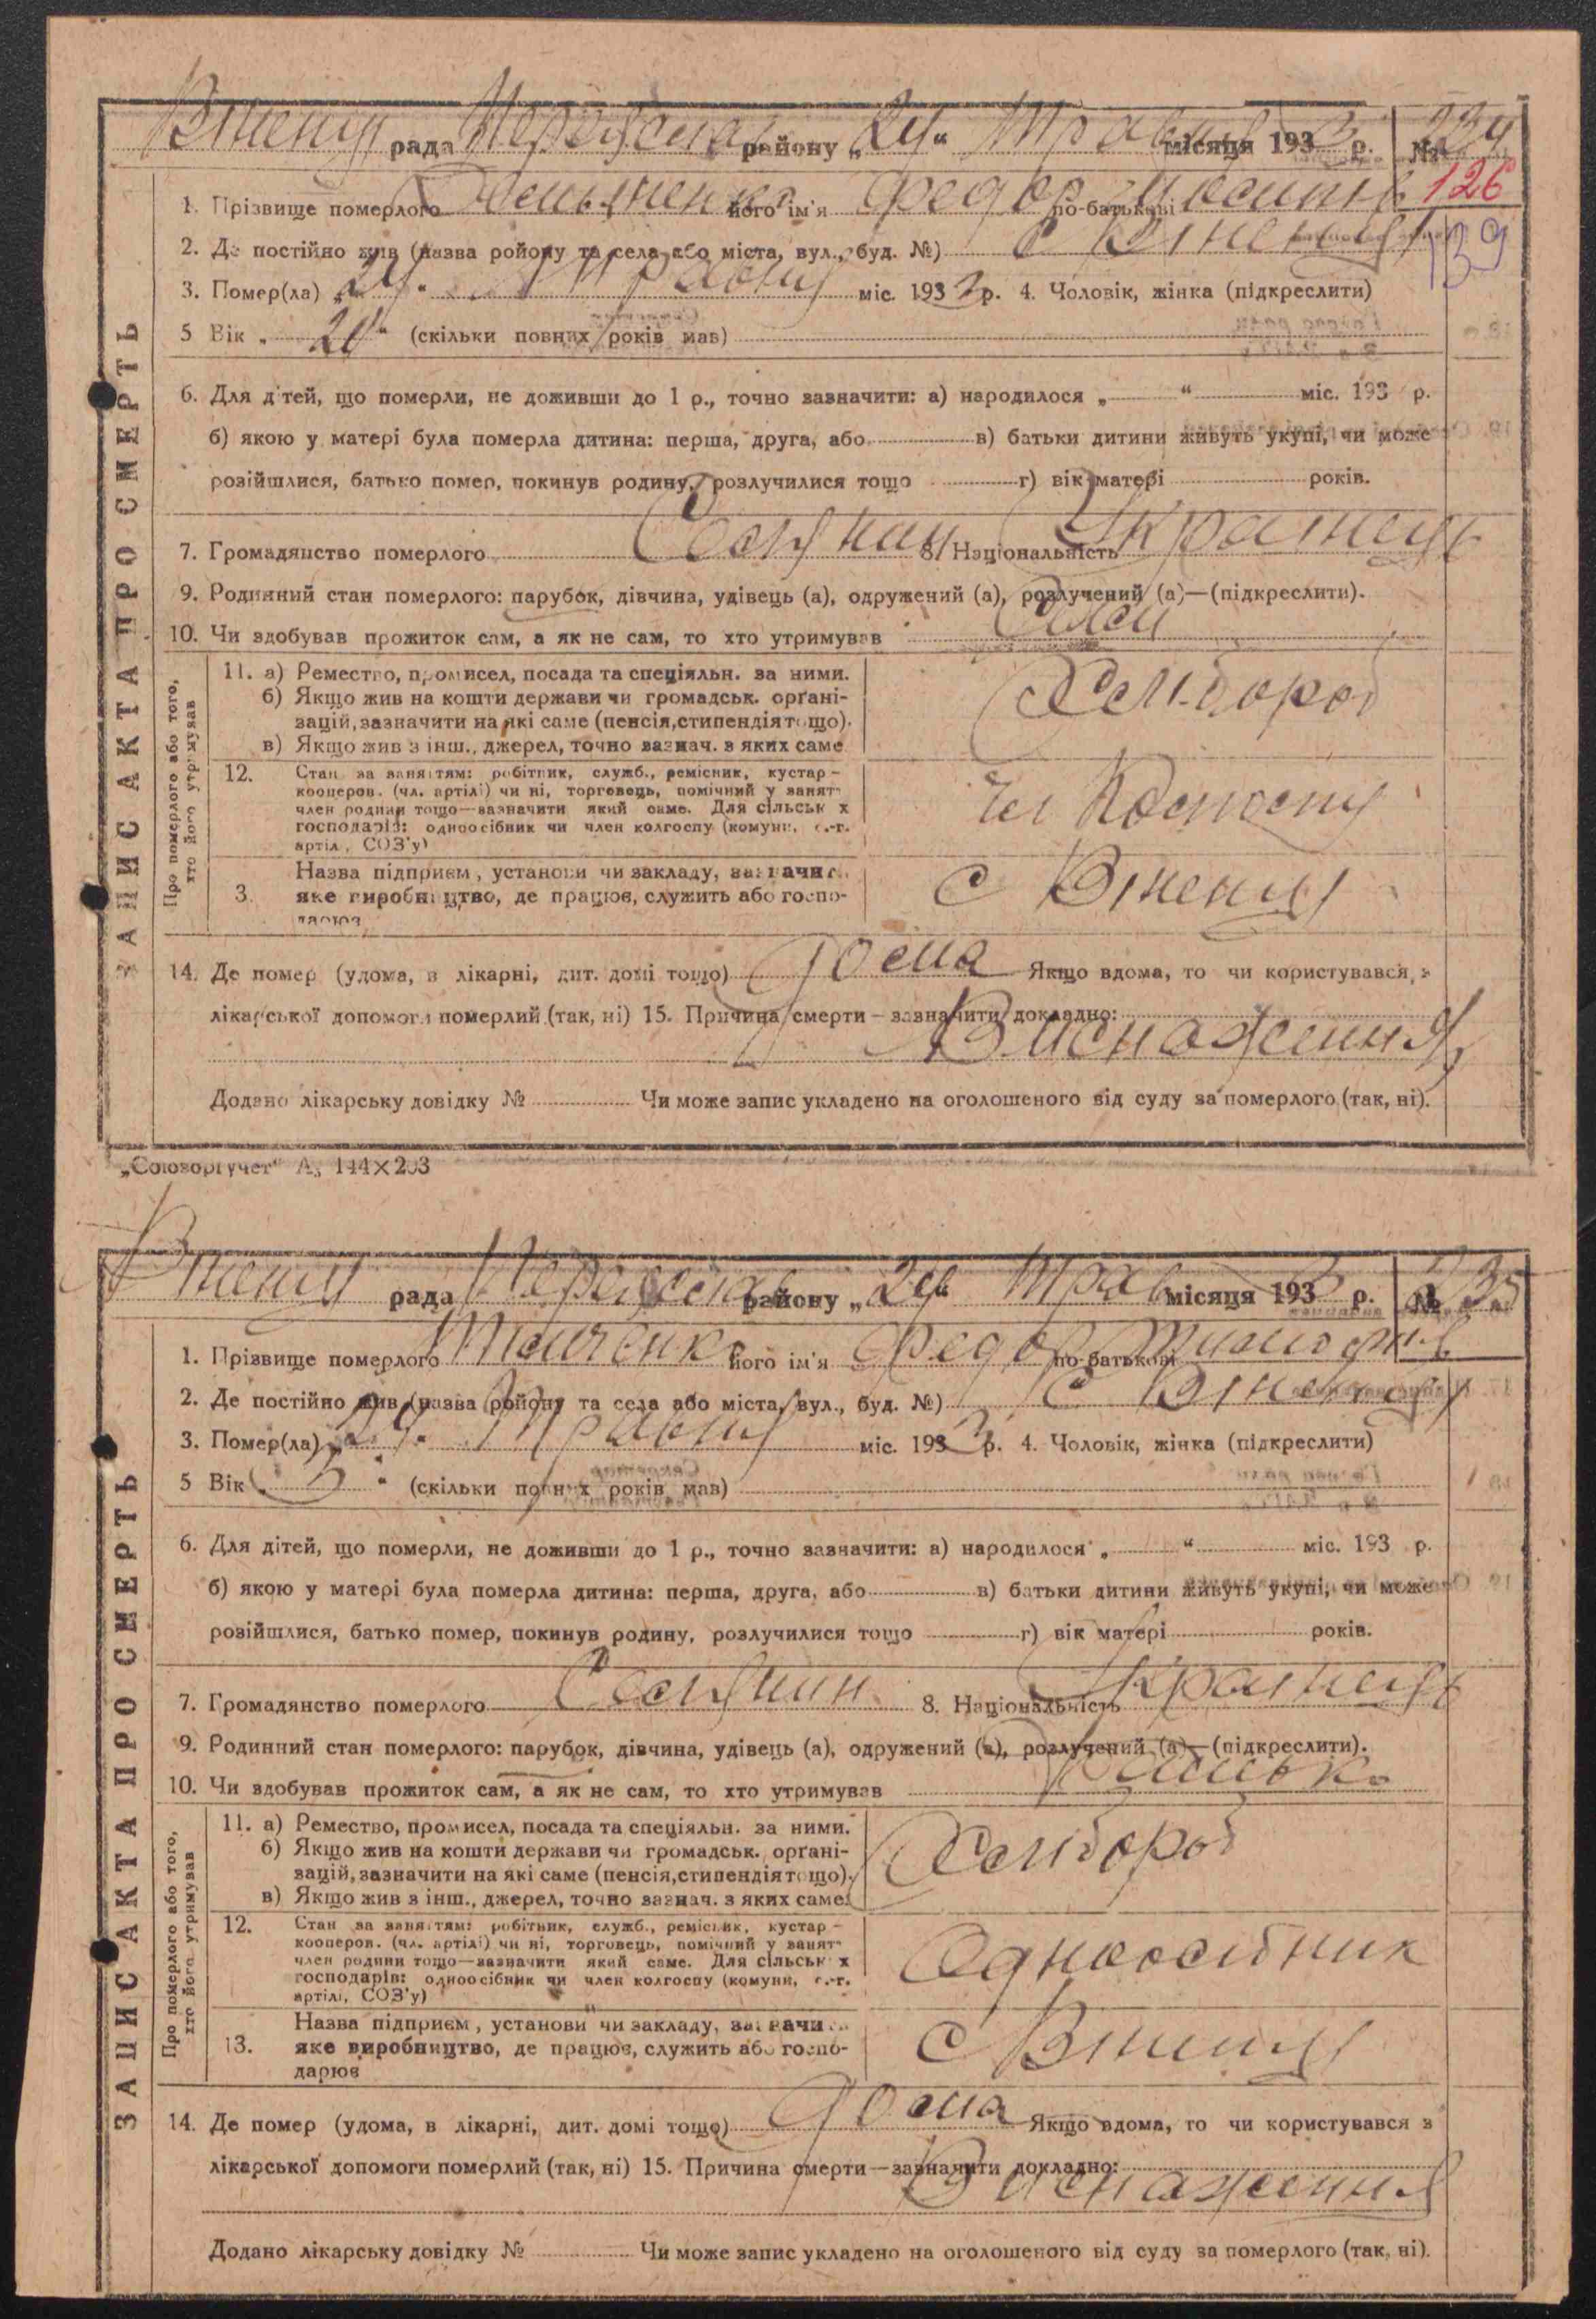 рада району „24“ Трав місяця 1933 р. № 234
126
1. Прізвище померлого його ім'я Федор по-батькові
139
2. Де постійно жив (назва ройону та села або міста, вул., буд. №) с
3. Помер(ла) „24“ Травня міс. 1933 р. 4. Чоловік, жінка (підкреслити)
5 Вік „20“ (скільки повних років мав)
6. Для дітей, що померли, не доживши до 1 р., точно зазначити: а) народилося „ “ міс. 193 р.
б) якою у матері була померла дитина: перша, друга, або в) батьки дитини живуть укупі, чи може
розійшлися, батько помер, покинув родину, розлучилися тощо г) вік матері років.
7. Громадянство померлого 8. Національність Українець
9. Родинний стан померлого: парубок, дівчина, удівець (а), одружений (а), розлучений (а)—(підкреслити).
10. Чи здобував прожиток сам, а як не сам, то хто утримував Сам
ЗАПИС АКТА ПРО СМЕРТЬ
Про померлого або того, хто його утримував
11. а) Ремество, промисел, посада та спеціяльн. за ними.
б) Якщо жив на кошти держави чи громадськ. орґані-
зацій, зазначити на які саме (пенсія, стипендія тощо).
в) Якщо жив з інш., джерел, точно зазнач. з яких саме
Хлібороб
12. Стан за заняттям: робітник, служб., ремісник, кустар –
кооперов. (чл. артілі) чи ні, торговець, помічний у занят
член родини тощо—зазначити який саме. Для сільськ х
господарів: одноосібник чи член колгоспу (комуни, с.-г.
артілі, СОЗ'у)
чл Колгоспу
Назва підприєм., установи чи закладу, зазначити
3. яке виробництво, де працює, служить або госпо-
дарює
с
14. Де помер (удома, в лікарні, дит. домі тощо) Дома Якщо вдома, то чи користувався з
лікарської допомоги померлий (так, ні) 15. Причина смерти – зазначити докладно:
Виснаження
Додано лікарську довідку № Чи може запис укладено на оголошеного від суду за померлого (так, ні).
„Союзоргучет“ А5 144×203
рада району „24“ Трав місяця 1933 р. № 235
1. Прізвище померлого його ім'я Федор по-батькові
2. Де постійно жив (назва ройону та села або міста, вул., буд. №) с
3. Помер(ла) „24“ Травня міс. 1933 р. 4. Чоловік, жінка (підкреслити)
5 Вік „3“ (скільки повних років мав)
6. Для дітей, що померли, не доживши до 1 р., точно зазначити: а) народилося „ “ міс. 193 р.
б) якою у матері була померла дитина: перша, друга, або в) батьки дитини живуть укупі, чи може
розійшлися, батько помер, покинув родину, розлучилися тощо г) вік матері років.
7. Громадянство померлого 8. Національність Українець
9. Родинний стан померлого: парубок, дівчина, удівець (а), одружений (а), розлучений (а)—(підкреслити).
10. Чи здобував прожиток сам, а як не сам, то хто утримував
ЗАПИС АКТА ПРО СМЕРТЬ
Про померлого або того, хто його утримував
11. а) Ремество, промисел, посада та спеціяльн. за ними.
б) Якщо жив на кошти держави чи громадськ. орґані-
зацій, зазначити на які саме (пенсія, стипендія тощо).
в) Якщо жив з інш., джерел, точно зазнач. з яких саме.
Хлібороб
12. Стан за заняттям: робітник, служб., ремісник, кустар –
кооперов. (чл. артілі) чи ні, торговець, помічний у занят
член родини тощо—зазначити який саме. Для сільськ х
господарів: одноосібник чи член колгоспу (комуни, с.-г.
артілі, СОЗ'у)
Одноосібник
Назва підприєм., установи чи закладу, зазначити
13. яке виробництво, де працює, служить або госпо-
дарює
с
14. Де помер (удома, в лікарні, дит. домі тощо) Дома Якщо вдома, то чи користувався з
лікарської допомоги померлий (так, ні) 15. Причина смерти—зазначити докладно:
Виснаження
Додано лікарську довідку № Чи може запис укладено на оголошеного від суду за померлого (так, ні).